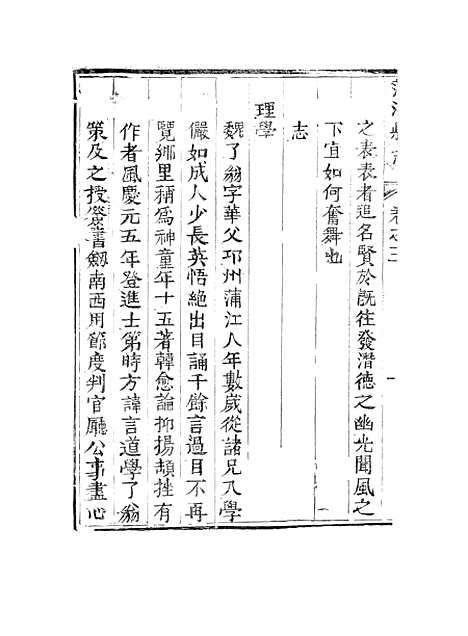 蒲江縣志 卷之三
之表表者追名賢於既往發潛德之幽光聞風之
下宜如何奮舞也
志
理學
魏了翁字華父邛州蒲江人年數歲從諸兄入學
儼如成人少長英悟絕出目誦千餘言過目不再
覽鄉里稱爲神童年十五著韓愈論抑揚頓挫有
作者風慶元五年登進士第時方諱言道學了翁
策及之授僉書劒南西川節度判官廳公事盡心